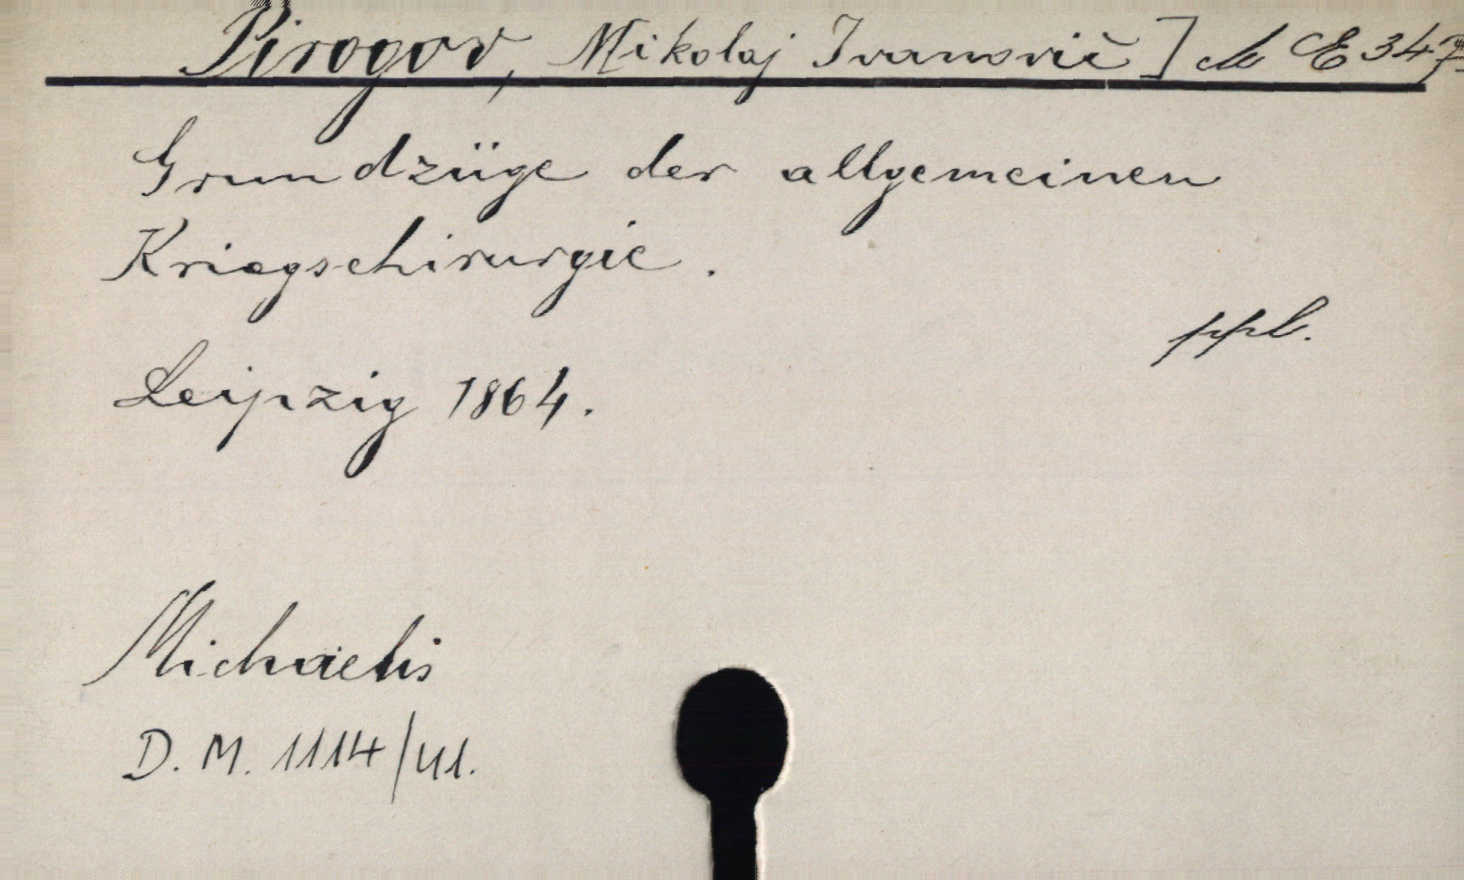 Pirogov, Nikolaj Ivanovič] M E 347
Grundzüge der allgemeinen
Kriegschirurgie.
ppl.
Leipzig 1864.
Michaelis
D. M. 1114/41.